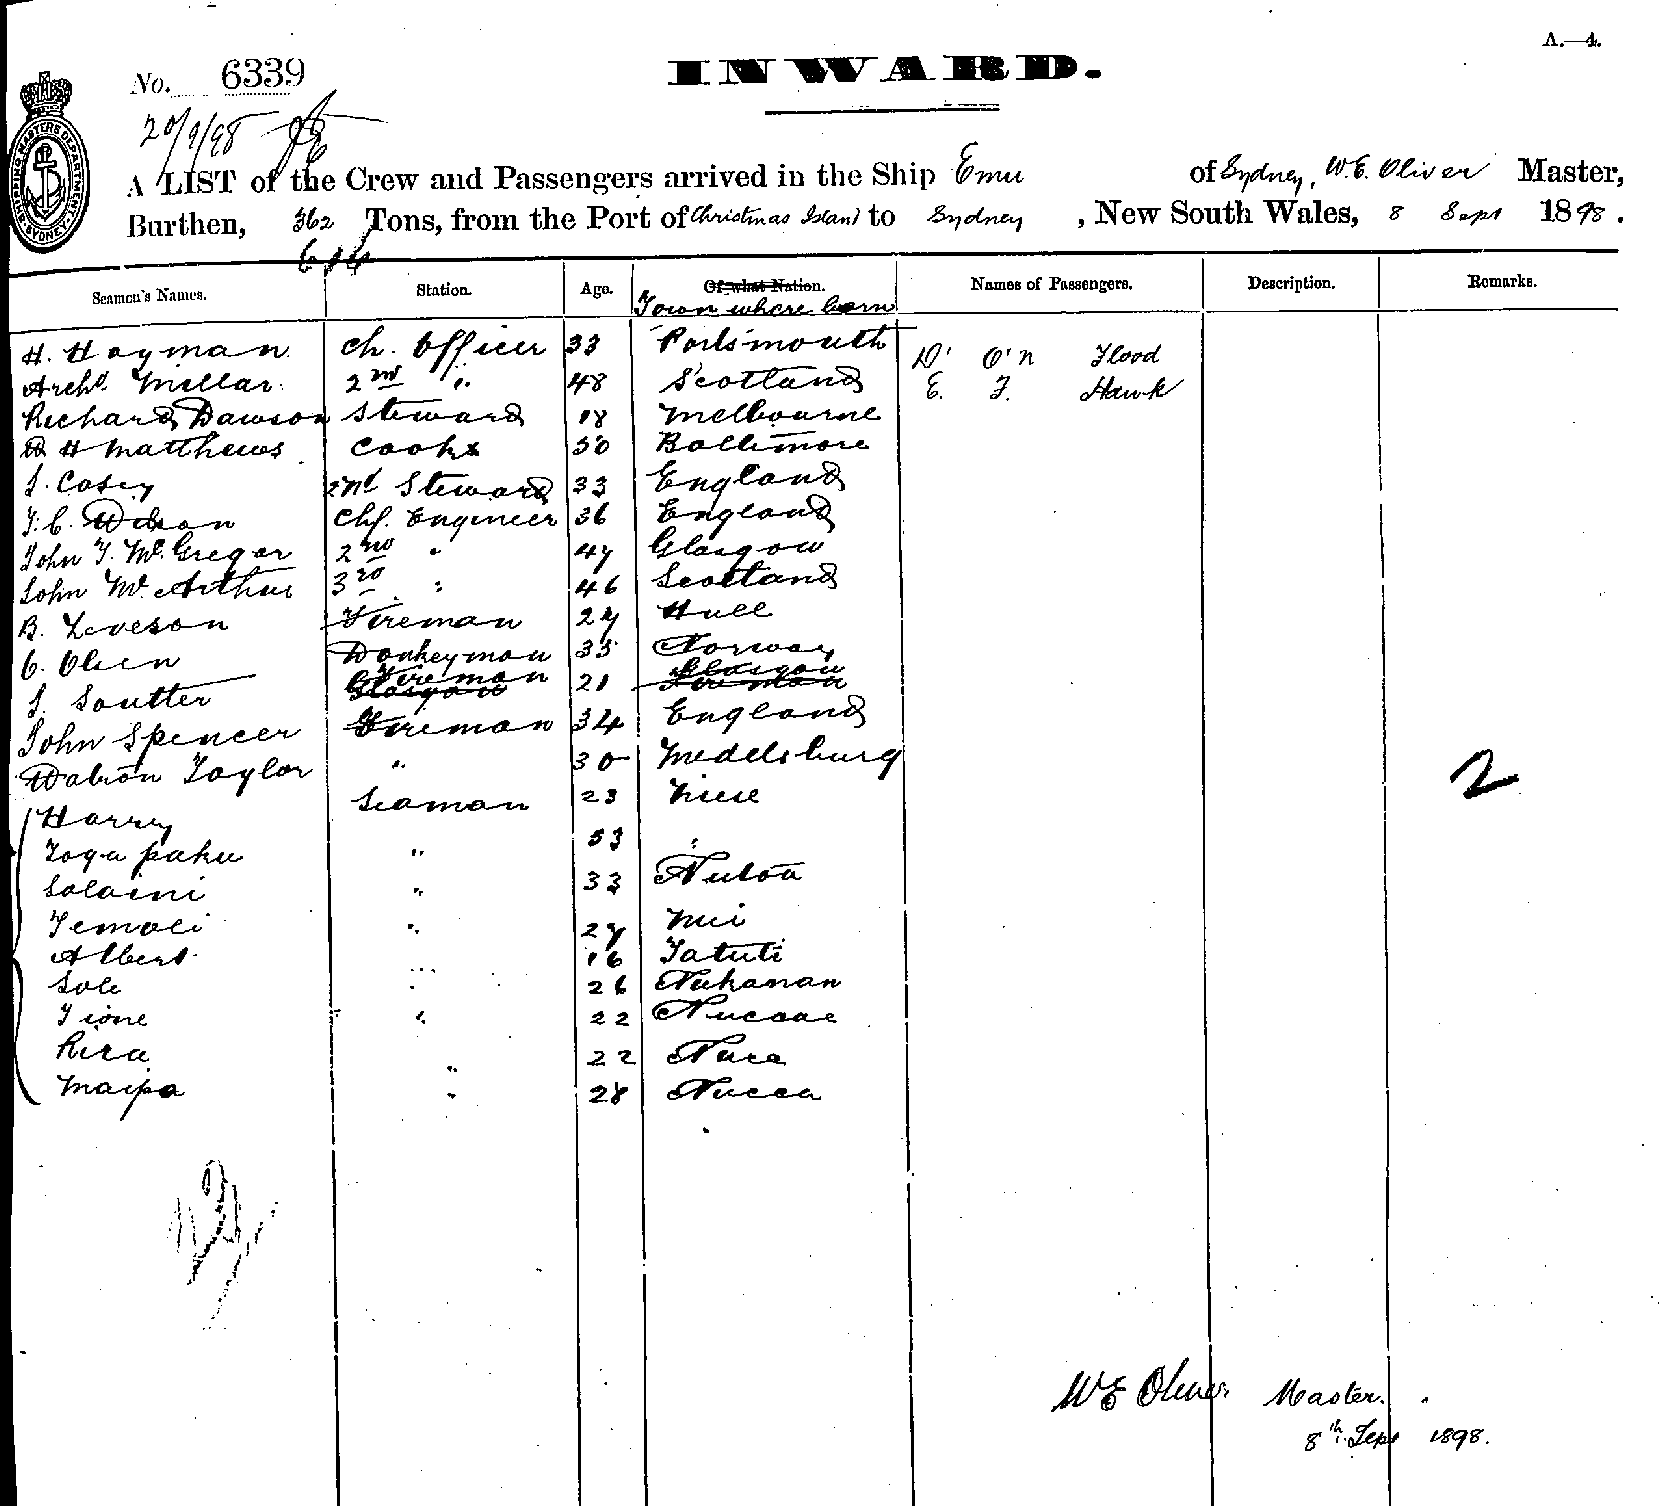 A.—4.
No. 6339
INWARD.
20/9/98
SHIPPING MASTERS DEPARTMENT SYDNEY
A LIST of the Crew and Passengers arrived in the Ship Emu of Sydney, W.E. Oliver Master,
Burthen, 362 Tons, from the Port of Christmas Island to Sydney, New South Wales, 8 Sept 1898.
Seamen's Names. Station. Age. Of what Nation. Names of Passengers. Description. Remarks.
Town where born
H. Hayman Ch. Officer 33 Portsmouth D' O'n Flood
Archd. Millar 2nd " 48 Scotland E. F. Hawk
Richard Dawson Steward 18 Melbourne
H Matthews Cook 50 Baltimore
J. Casey 2nd Steward 33 England
Chf. Engineer 36 England
John T. McGregor 2nd " 47 Glasgow
John McArthur 3rd " 46 Scotland
B. Leveson Fireman 27 Hull
C. Olsen Donkeyman 35 Norway
Fireman Glasgow
J. Soutter Glasgow 21 Fireman
John Spencer Fireman 34 England
Taylor " 30 Medelsburg
Harry Seaman 23 Niue
Togapahu " 53 "
Salaini " 33
Temoli " 27 Nui
Albert " 16 Tatuti
Sole " 26
Tione " 22
Rira " 22
Maipa " 28
2
W E Oliver Master.
8th Sept 1898.